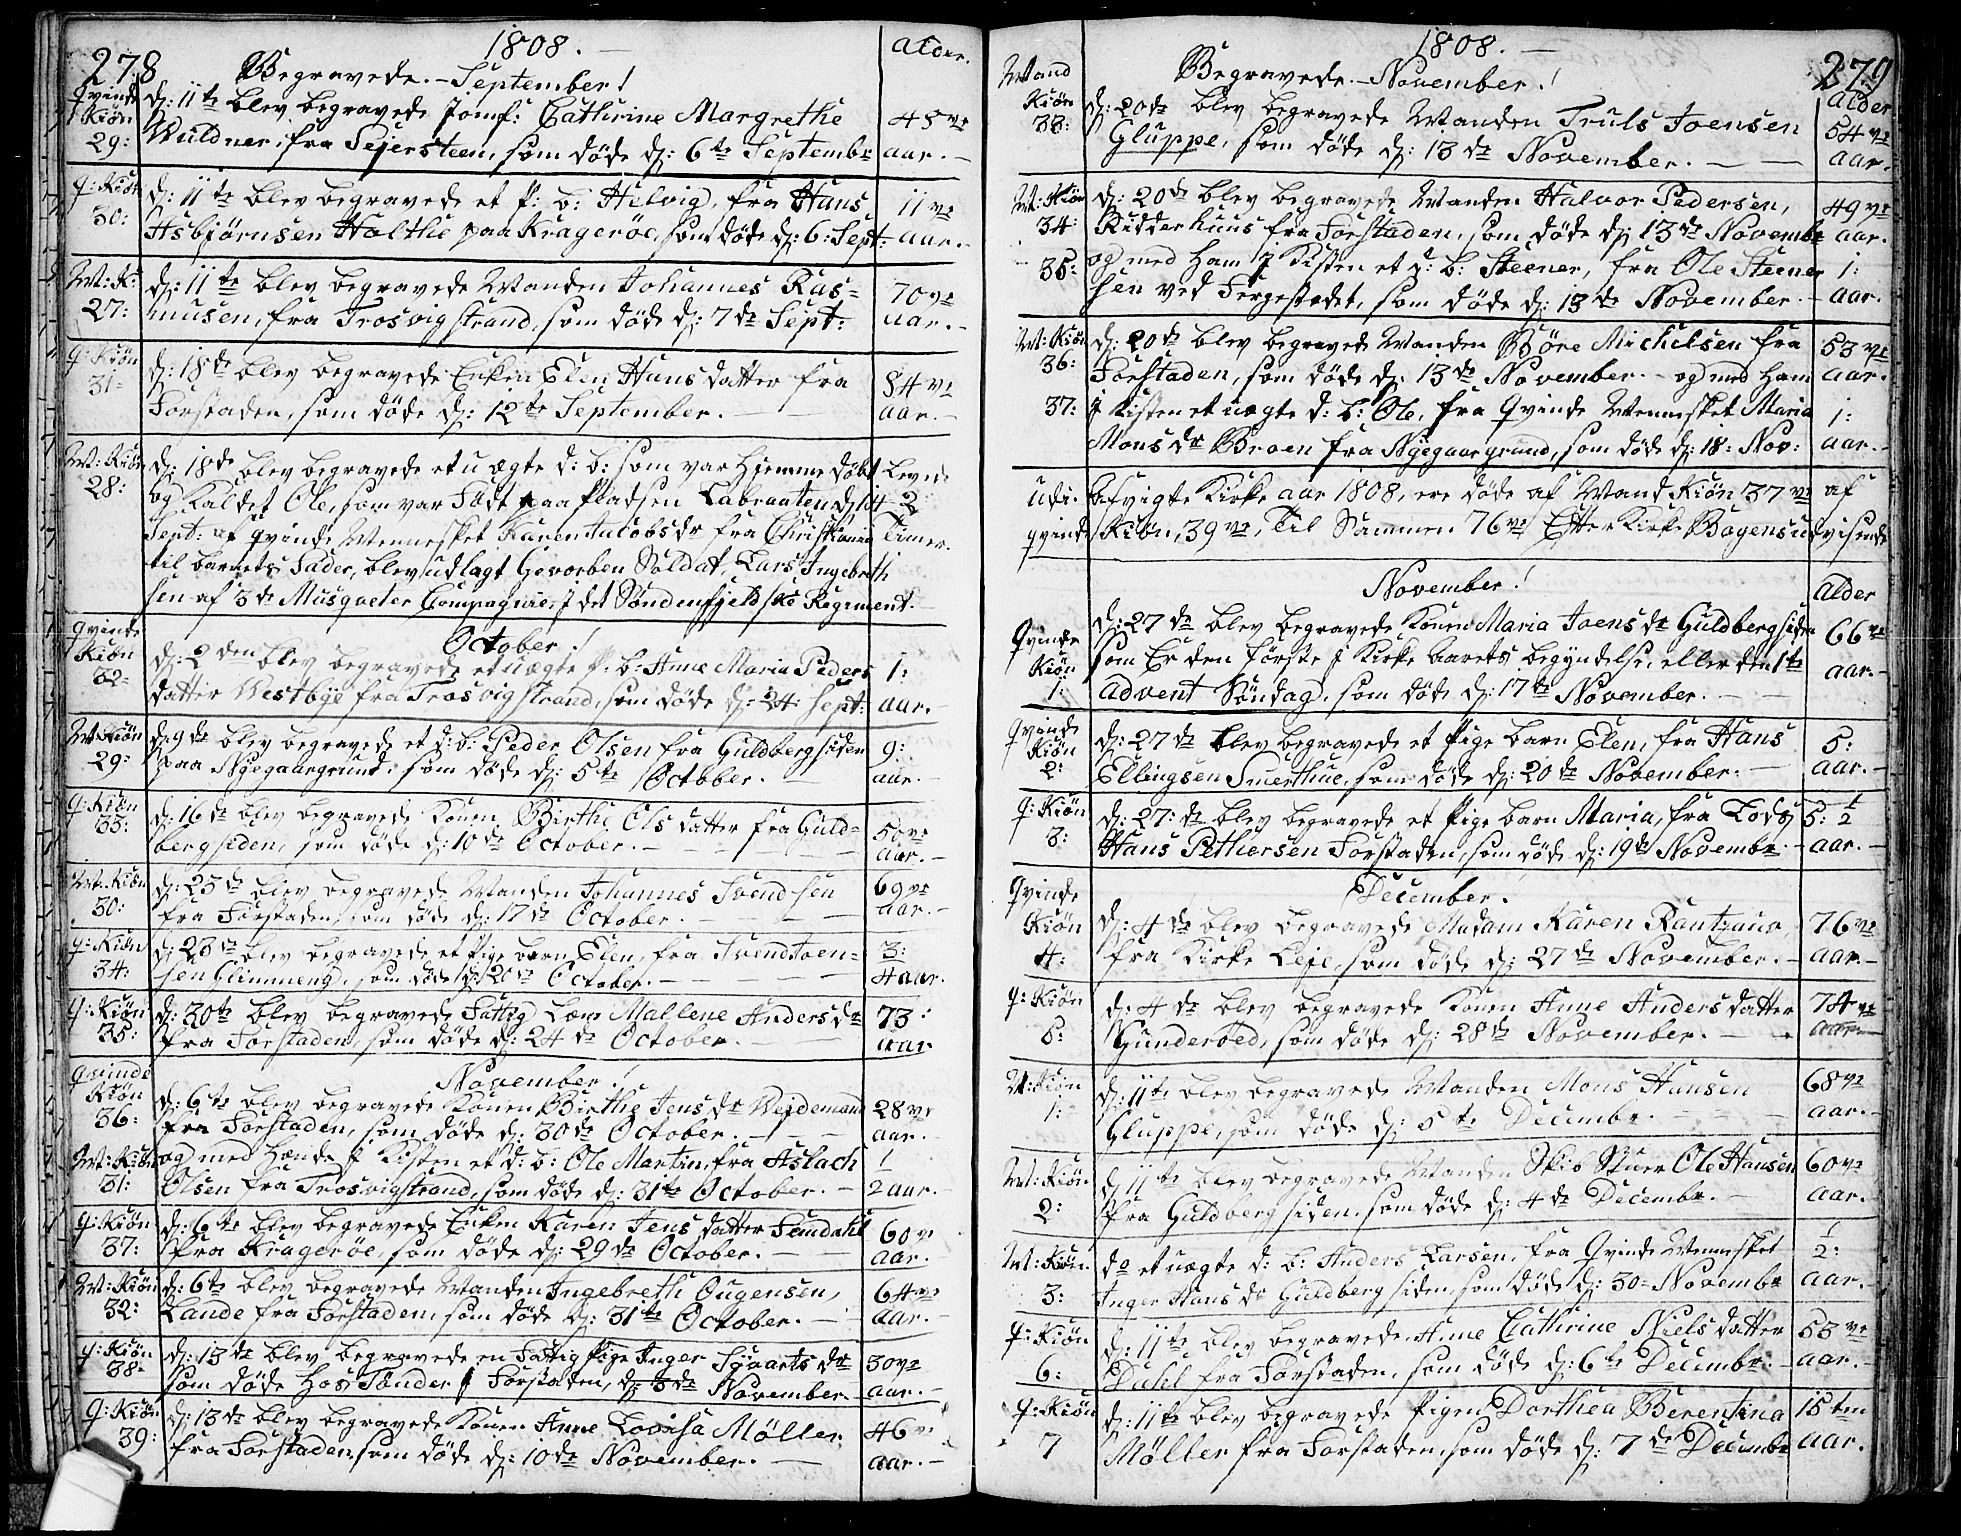 278
1808. —
Begravede. — September!
Alder.
Qvinde Kiøn 29:
d: 11te blev begravede Jomf: Cathrine Margrethe
Wuldner, fra Sejersteen, som døde d: 6te Septembr
45ve aar. —
q: Kiøn 30:
d: 11te blev begravede et p: b: Helvig, fra Hans
Asbjørnsen Holthe paa Kragerøe, som døde d: 6: Sept:
11ve aar. —
M: K: 27:
d: 11te blev begravede Manden Johannes Ras=
musen, fra Trosvigstrand, som døde d: 7de Sept:
70ve aar. —
q: Kiøn 31=
d: 18de blev begravede Enken Elen Hans datter fra
Forstaden, som døde d: 12te September. —
84ve aar. —
M: Kiøn 28:
d: 18de blev begravede et uægte d: b: som var hjemme døbt
og Kaldet Ole, som var Født paa Pladsen Labraaten d: 14
Sept: af qvinde Mennesket Karen Jacobsdr fra Christiania
til barnets Fader, blev udlagt Gevorben Soldat, Lars Ingebreth
sen af 3de Musqveter Compagnie i det Søndenfjeldske Regiment. —
Levede 2 Timer.
October!
qvinde Kiøn 32=
d: 2den blev begravede et uægte p: b: Anne Maria Peders
datter Westbye fra Trosvigstrand, som døde d: 24: Sept:
1: aar. —
M: Kiøn 29:
d: 9de blev begravede et d: b: Peder Olsen fra Guldbergsiden
paa Nyegaargrund, som døde d: 5te October.
9: aar. —
q: Kiøn 33:
d: 16de blev begravede Konen Birthe Ols datter fra Guld=
bergsiden, som døde d: 10de October. —
50ve aar. —
M: Kiøn 30:
d: 23de blev begravede Manden Johannes Svendsen
fra Forstaden, som døde d: 17de October. —
69ve aar. —
q: Kiøn 34:
d: 23de blev begravede et Pige barn Elen, fra Svend Joen=
sen Glimmeng, som døde d: 20de October. —
3: 4 aar.
q: Kiøn 35:
d: 30te blev begravede Fattig Lem Mallene Andersdr
fra Forstaden, som døde d: 24de October. —
73: aar
November!
qvinde Kiøn 36:
d: 6te blev begravede Konen Birthe Jensdr Weidemann
fra Forstaden, som døde d: 30de October. —
28ve aar.
M: Kiøn 31:
og med hende i Kisten et d: b: Ole Martin, fra Aslach
Olsen fra Trosvigstrand, som døde d: 31te October. —
1 2 aar. —
q: Kiøn 37:
d: 6te blev begravede Enken Karen Jens datter Semdahl
fra Kragerøe, som døde d: 29de October. —
60ve aar. —
M: Kiøn 32:
d: 6te blev begravede Manden Ingebreth Ougensen,
Lande fra Forstaden, som døde d: 31te October. —
64ve aar. —
q: Kiøn 38=
d: 13de blev begravede en Fattig Pige Inger Sivartsdr
som døde hos Tønder i Forstaden, d: 3de November. —
30ve aar. —
q: Kiøn 39:
d: 13de blev begravede Konen Anne Lovisa Møller
fra Forstaden, som døde d: 10de November. —
46ve aar. —
279
1808. —
Begravede. — November!
Alder
Mand Kiøn 33:
d: 20de blev begravede Manden Truls Joensen
Gluppe, som døde d: 13de November. —
54ve aar. —
M: Kiøn 34:
d: 20de blev begravede Manden Halvor Pedersen,
Ridderhuus fra Forstaden, som døde d: 13de Novembr
49ve aar. —
35:
og med ham i Kisten et d: b: Steener, fra Ole Steener
sen ved Fergestædet, som døde d: 13de November. —
1: aar. —
M: Kiøn 36:
d: 20de blev begravede Manden Børe Michelsen fra
Forstaden, som døde d: 13de November. — og med ham
53ve aar. —
37:
i Kisten et uægte d: b: Ole, fra Qvinde Mennesket Maria
Monsdr Broen fra Nyegaargrund, som døde d: 18= Nov:
1: aar. —
Udi Afvigte Kirke aar 1808, ere døde af Mand Kiøn 37ve af
qvinde Kiøn, 39ve, Til Sammen 76ve Efter Kirke Bogens udvisende
November!
Alder
Qvinde Kiøn 1:
d: 27de blev begravede Konen Maria Joensdr Guldbergsiden
som Er den Første i Kirke Aarets begyndelse, eller den 1te
advent Søndag, som døde d: 17de November. —
66ve aar. —
Qvinde Kiøn 2:
d: 27de blev begravede et Pige barn Elen, fra Hans
Ellingsen Smerthue, som døde d: 20de November. —
5: aar. —
q: Kiøn 3:
d: 27: de blev begravede et Pige barn Maria, fra Lods
Hans Pethersen Forstaden, som døde d: 19de Novembr. —
5: 1/2 aar. —
December!
Qvinde Kiøn 4:
d: 4de blev begravede Madam Karen Rantzau,
fra Kirke Leje, som døde d: 27de November. —
76ve aar. —
q: Kiøn 5:
d: 4de blev begravede Konen Anne Anders datter
Gunderøed, som døde d: 28de November. —
74ve aar. —
M: Kiøn 1:
d: 11te blev begravede Manden Mons Hansen
Gluppe, som døde d: 5te Decembr. —
68ve aar. —
M: Kiøn 2:
d: 11te blev begravede Manden Skib Stuer Ole Hansen
fra Guldbergsiden, som døde d: 4de Decembr. —
60ve aar. —
M: Kiøn. 3:
do et uægte d: b: Anders Larsen, fra Qvinde Mennesket
Inger Hansdr Guldbergsiden, som døde d: 30= Novembr
1/2: aar. —
q: Kiøn 6:
d: 11te blev begravede Anne Cathrine Niels datter
Dahl fra Forstaden, som døde d: 6te Decembr. —
53ve aar. —
q: Kiøn 7
d: 11te blev begravede Pigen Dorthea Berentina
Møller fra Forstaden, som døde d: 7de Decembr
15ten aar.